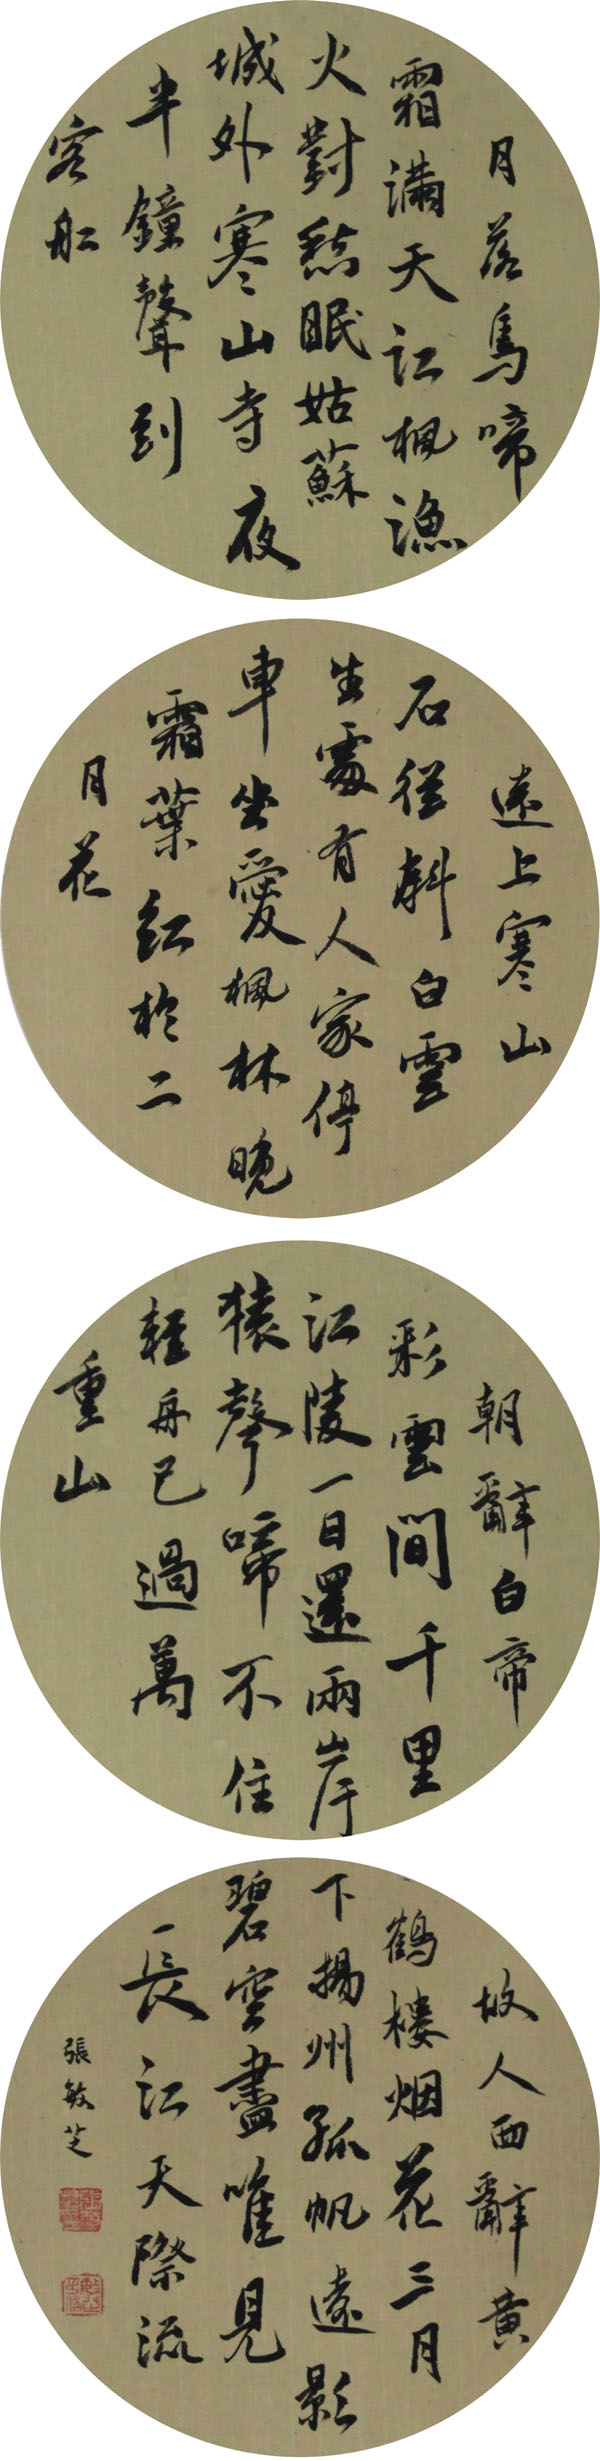 月落烏啼
霜滿天江楓漁
火對愁眠姑蘇
城外寒山寺夜
半鐘聲到
客船
遠上寒山
石徑斜白雲
生處有人家停
車坐愛楓林晚
霜葉紅於二
月花
朝辭白帝
彩雲間千里
江陵一日還兩岸
猿聲啼不住
輕舟已過萬
重山
故人西辭黃
鶴樓烟花三月
下揚州孤帆遠影
碧空盡唯見
長江天際流
張敏芝